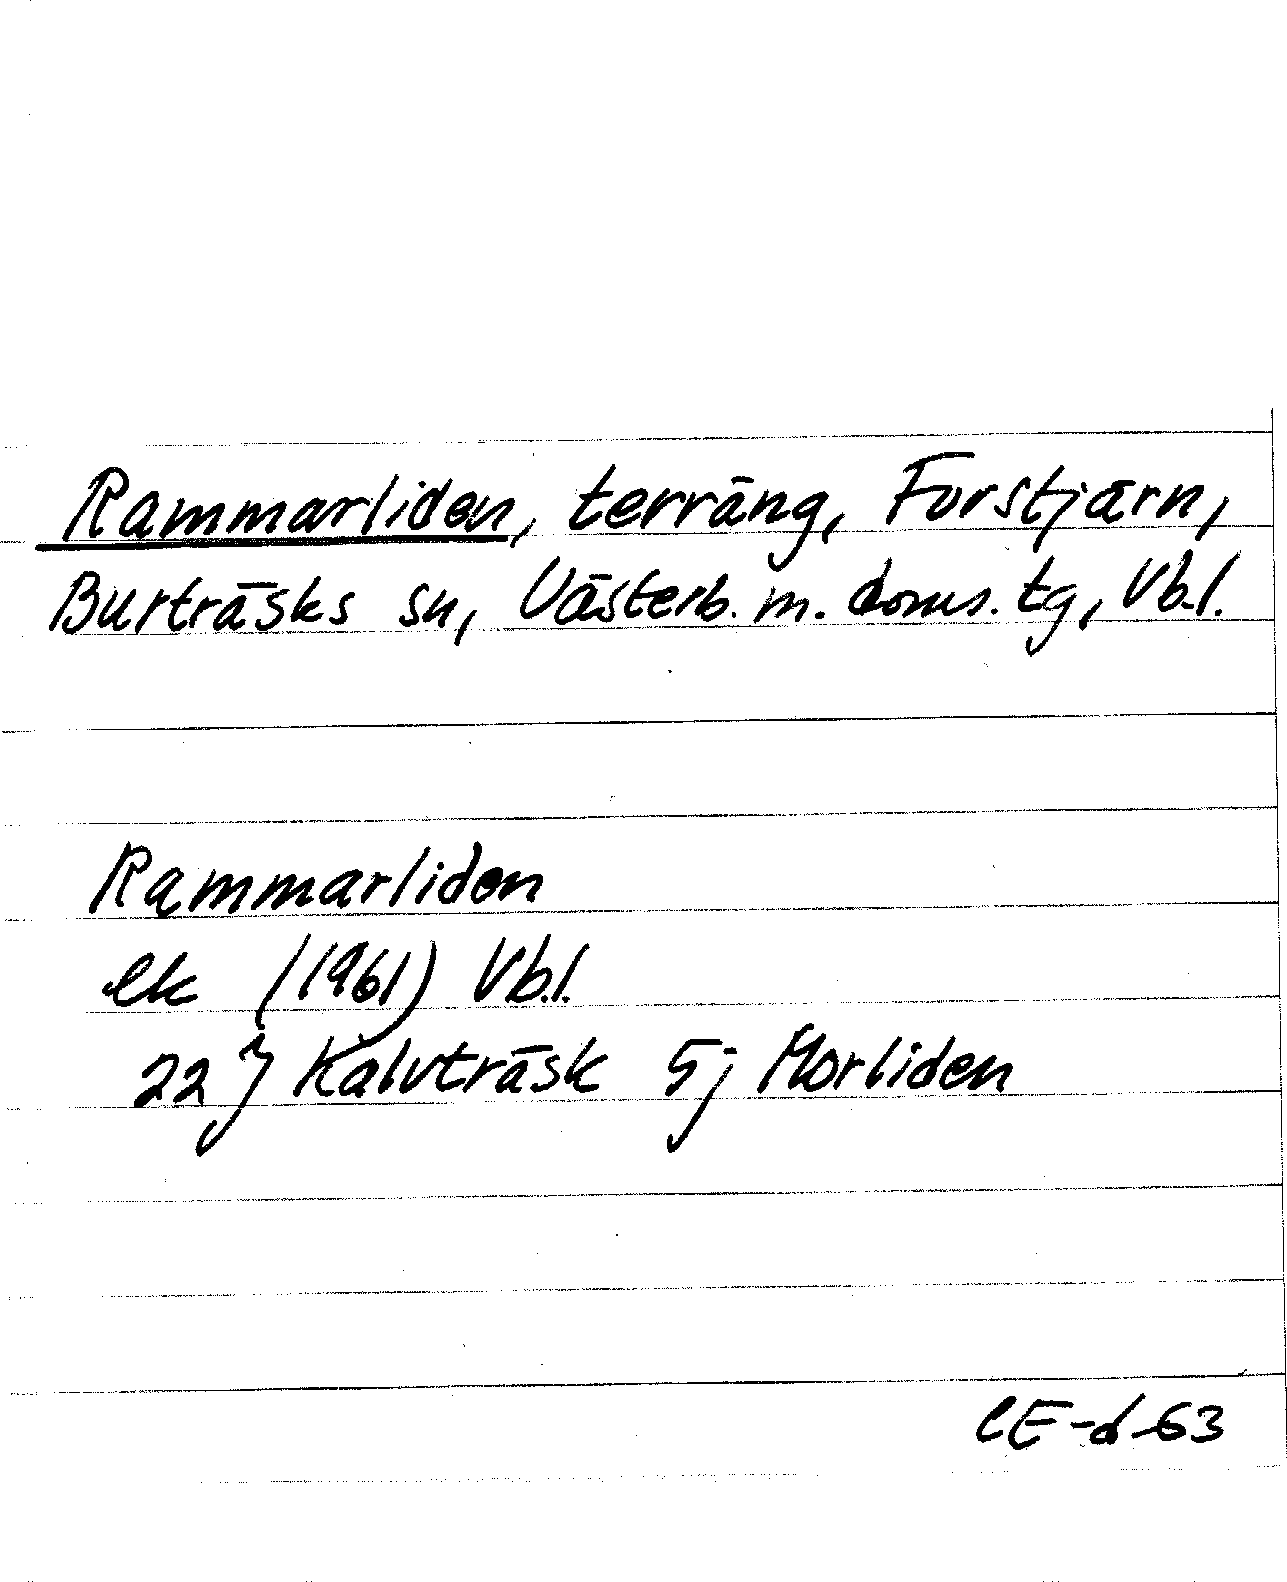 Rammarliden, terräng, Forstjärn,
Burträsks sn, Västerb. m. doms. tg, Vb.l.
Rammarliden
ek (1961) Vb.l.
22 J Kalvträsk 5j Morliden
CE-d-63